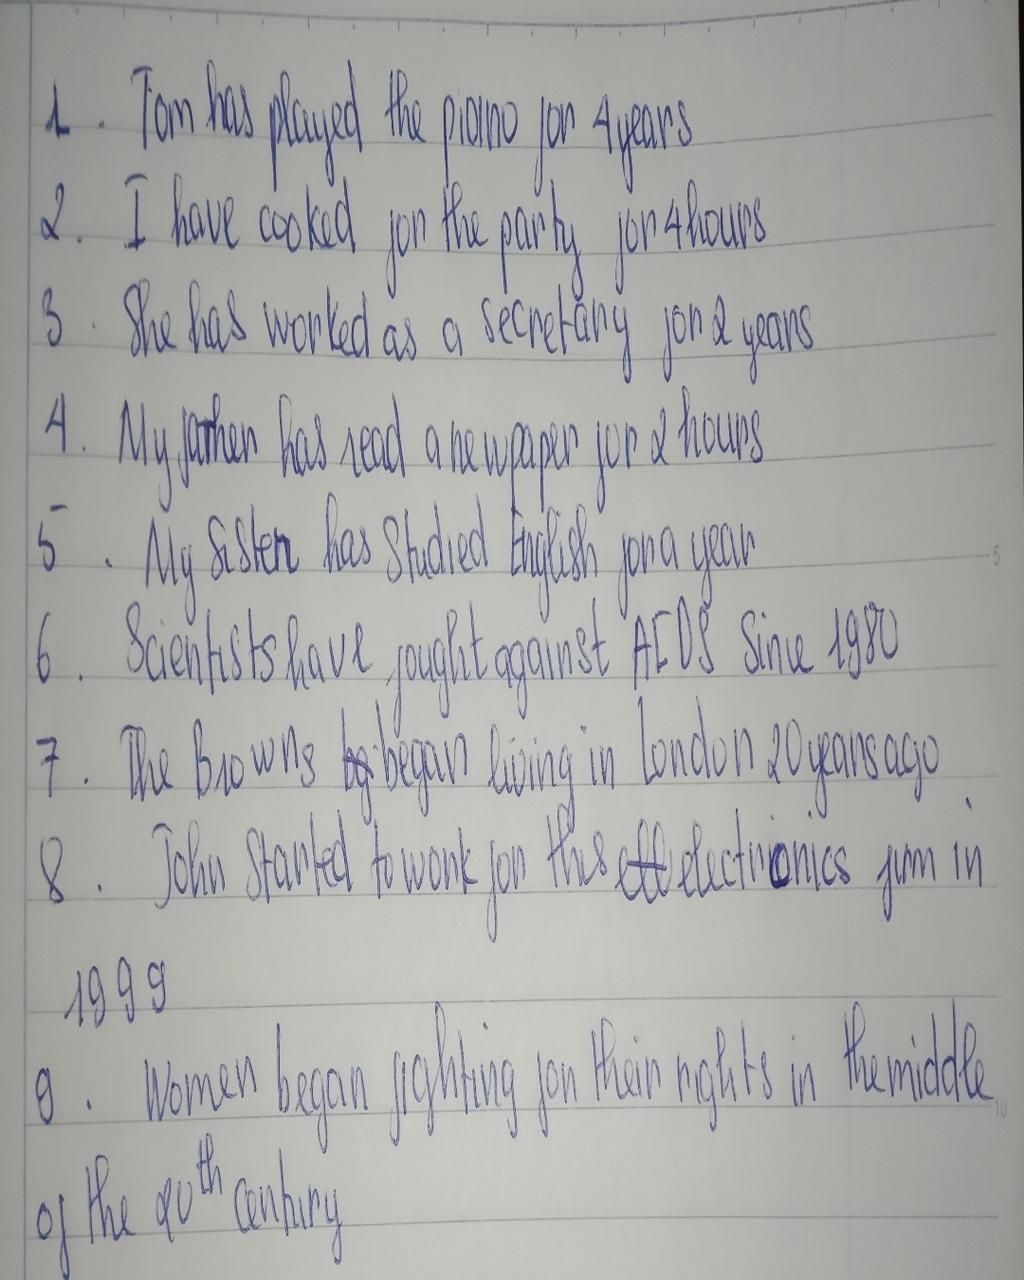 1. Tom has played the piano for 4 years
2. I have cooked for the party for 4 hours
3. She has worked as a secretary for 2 years
4. My father has read a newpaper for 2 hours
5. My sister has studied English for a year
6. Scientists have fought against AIDS since 1980
7. The Browns began living in London 20 years ago
8. John started to work for this electronics firm in
1999
9. Women began fighting for their rights in the middle
of the 20th century
5
10